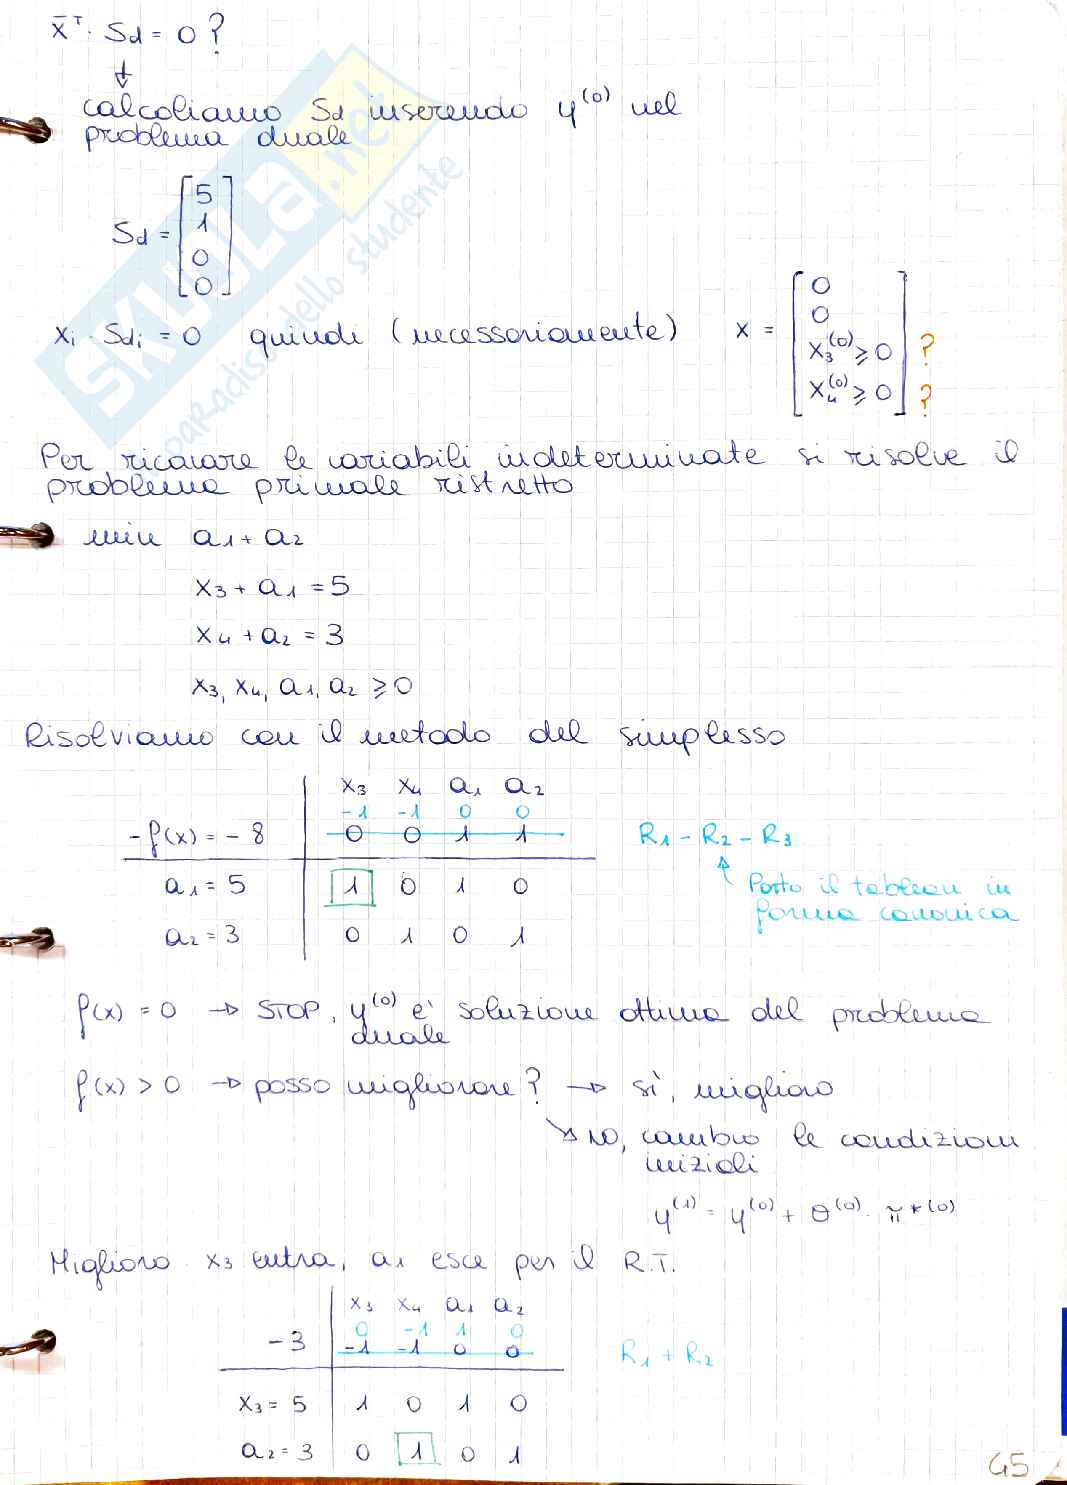 x̄ᵀ · Sd = 0 ?
↓
calcoliamo Sd inserendo y⁽⁰⁾ nel
problema duale
Sd = [5 1 0 0]
xᵢ · Sdᵢ = 0 quindi (necessariamente) x = [0 0 x₃⁽⁰⁾ ⩾ 0 x₄⁽⁰⁾ ⩾ 0] ? ?
Per ricavare le variabili indeterminate si risolve il
problema primale ristretto
min a₁ + a₂
x₃ + a₁ = 5
x₄ + a₂ = 3
x₃, x₄, a₁, a₂ ⩾ 0
Risolviamo con il metodo del simplesso
x₃ x₄ a₁ a₂
-1 -1 0 0
-f(x) = - 8 0 0 1 1 R₁ - R₂ - R₃
a₁ = 5 1 0 1 0 Porto il tableau in
forma canonica
a₂ = 3 0 1 0 1
f(x) = 0 → STOP, y⁽⁰⁾ e' soluzione ottima del problema
duale
f(x) > 0 → posso migliorare? → sì, miglioro
↘ NO, cambio le condizioni
iniziali
y⁽¹⁾ = y⁽⁰⁾ + θ⁽⁰⁾ · π*⁽⁰⁾
Miglioro x₃ entra, a₁ esce per il R.T.
x₃ x₄ a₁ a₂
0 -1 1 0
-3 -1 -1 0 0 R₁ + R₂
x₃ = 5 1 0 1 0
a₂ = 3 0 1 0 1
45
SKUOLA.net
paradiso dello studente